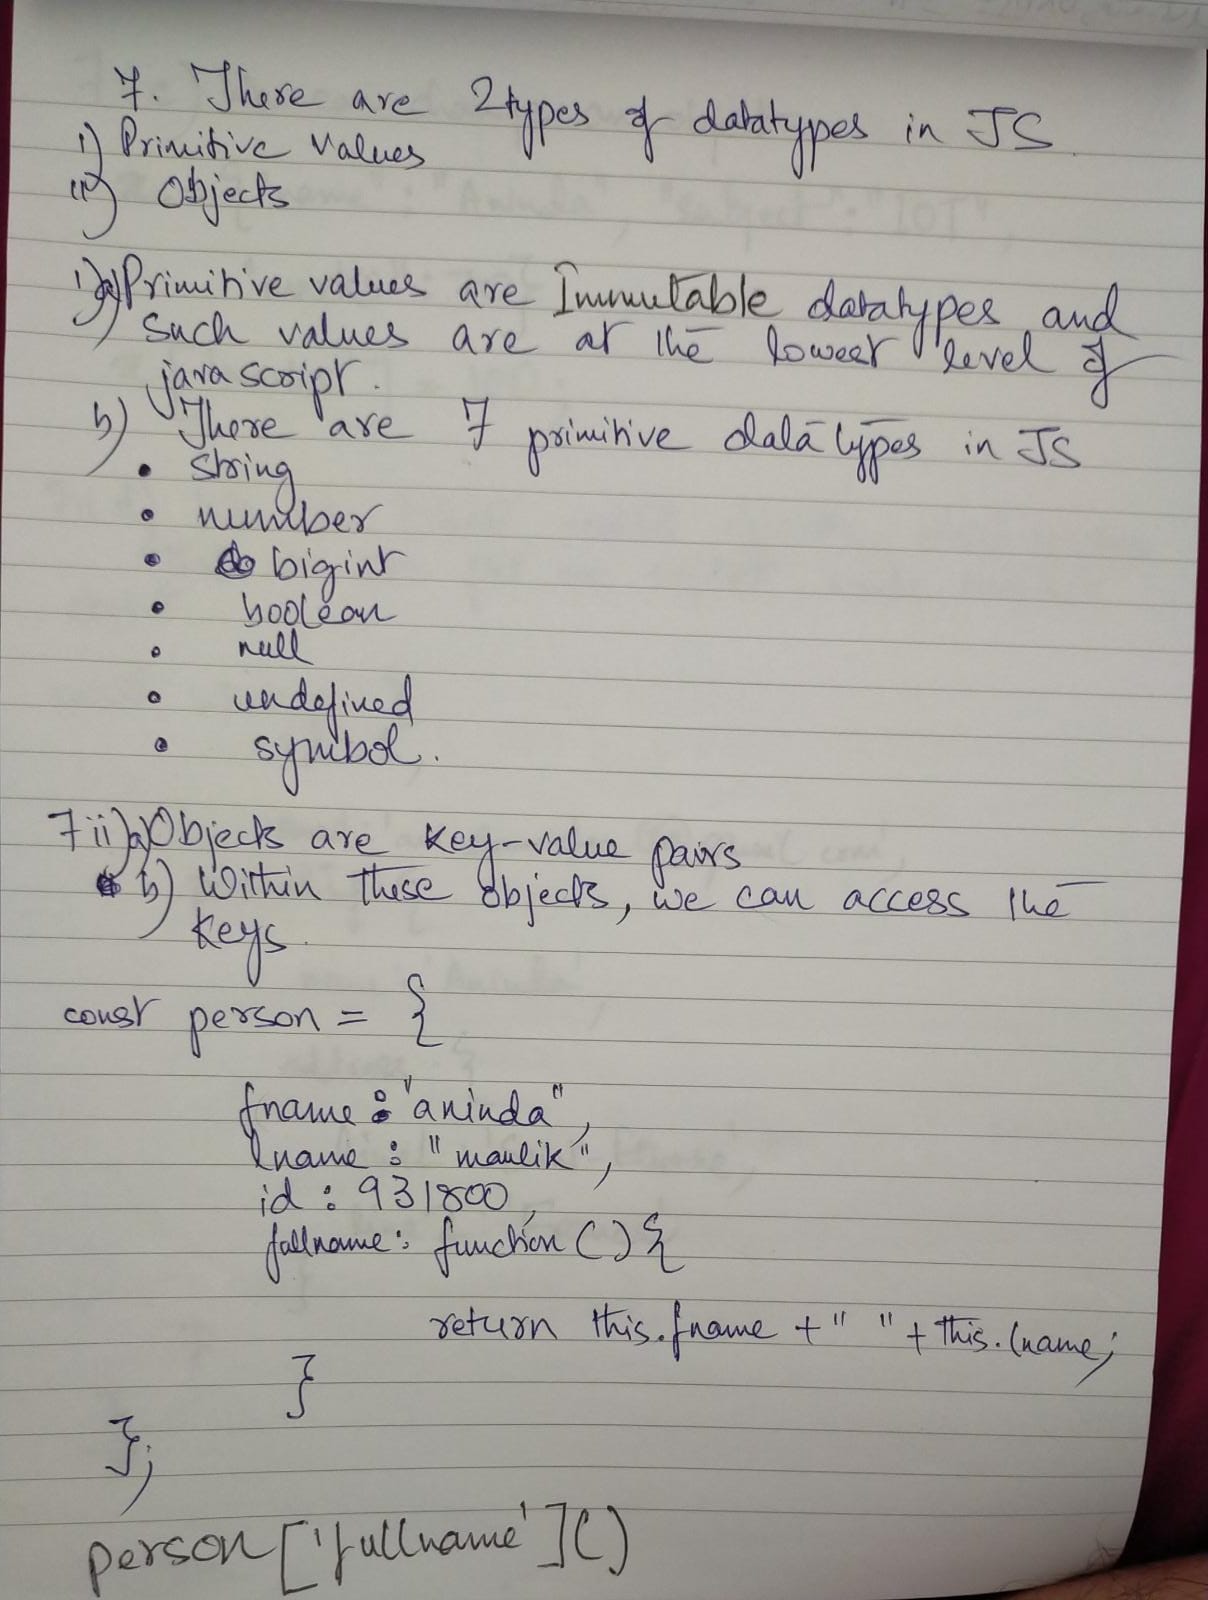 7. There are 2 types of datatypes in JS.
i) Primitive values
ii) Objects
i)a) Primitive values are Immutable datatypes and
such values are at the lowest level of
javascript.
b) There are 7 primitive data types in JS
• string
• number
• bigint
• boolean
• null
• undefined
• symbol.
7ii)a) Objects are key-value pairs
b) Within these objects, we can access the
keys.
const person = {
fname : "aninda",
lname : "maulik",
id : 931800,
fullname : function () {
return this.fname + " " + this.lname;
}
};
person['fullname']()